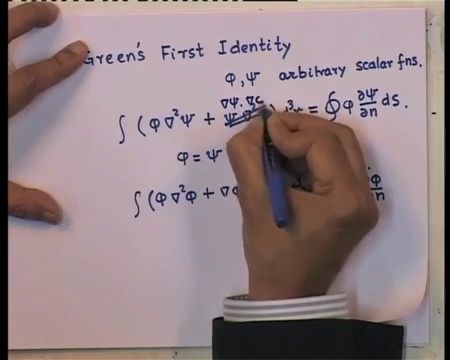 Green's First Identity
φ, ψ arbitrary scalar fns.
∇ψ.∇
∫ (φ∇²ψ + ) d³x = ∮ φ ∂ψ/∂n ds.
φ = ψ
∫ (φ∇²φ + ∇φ φ/n